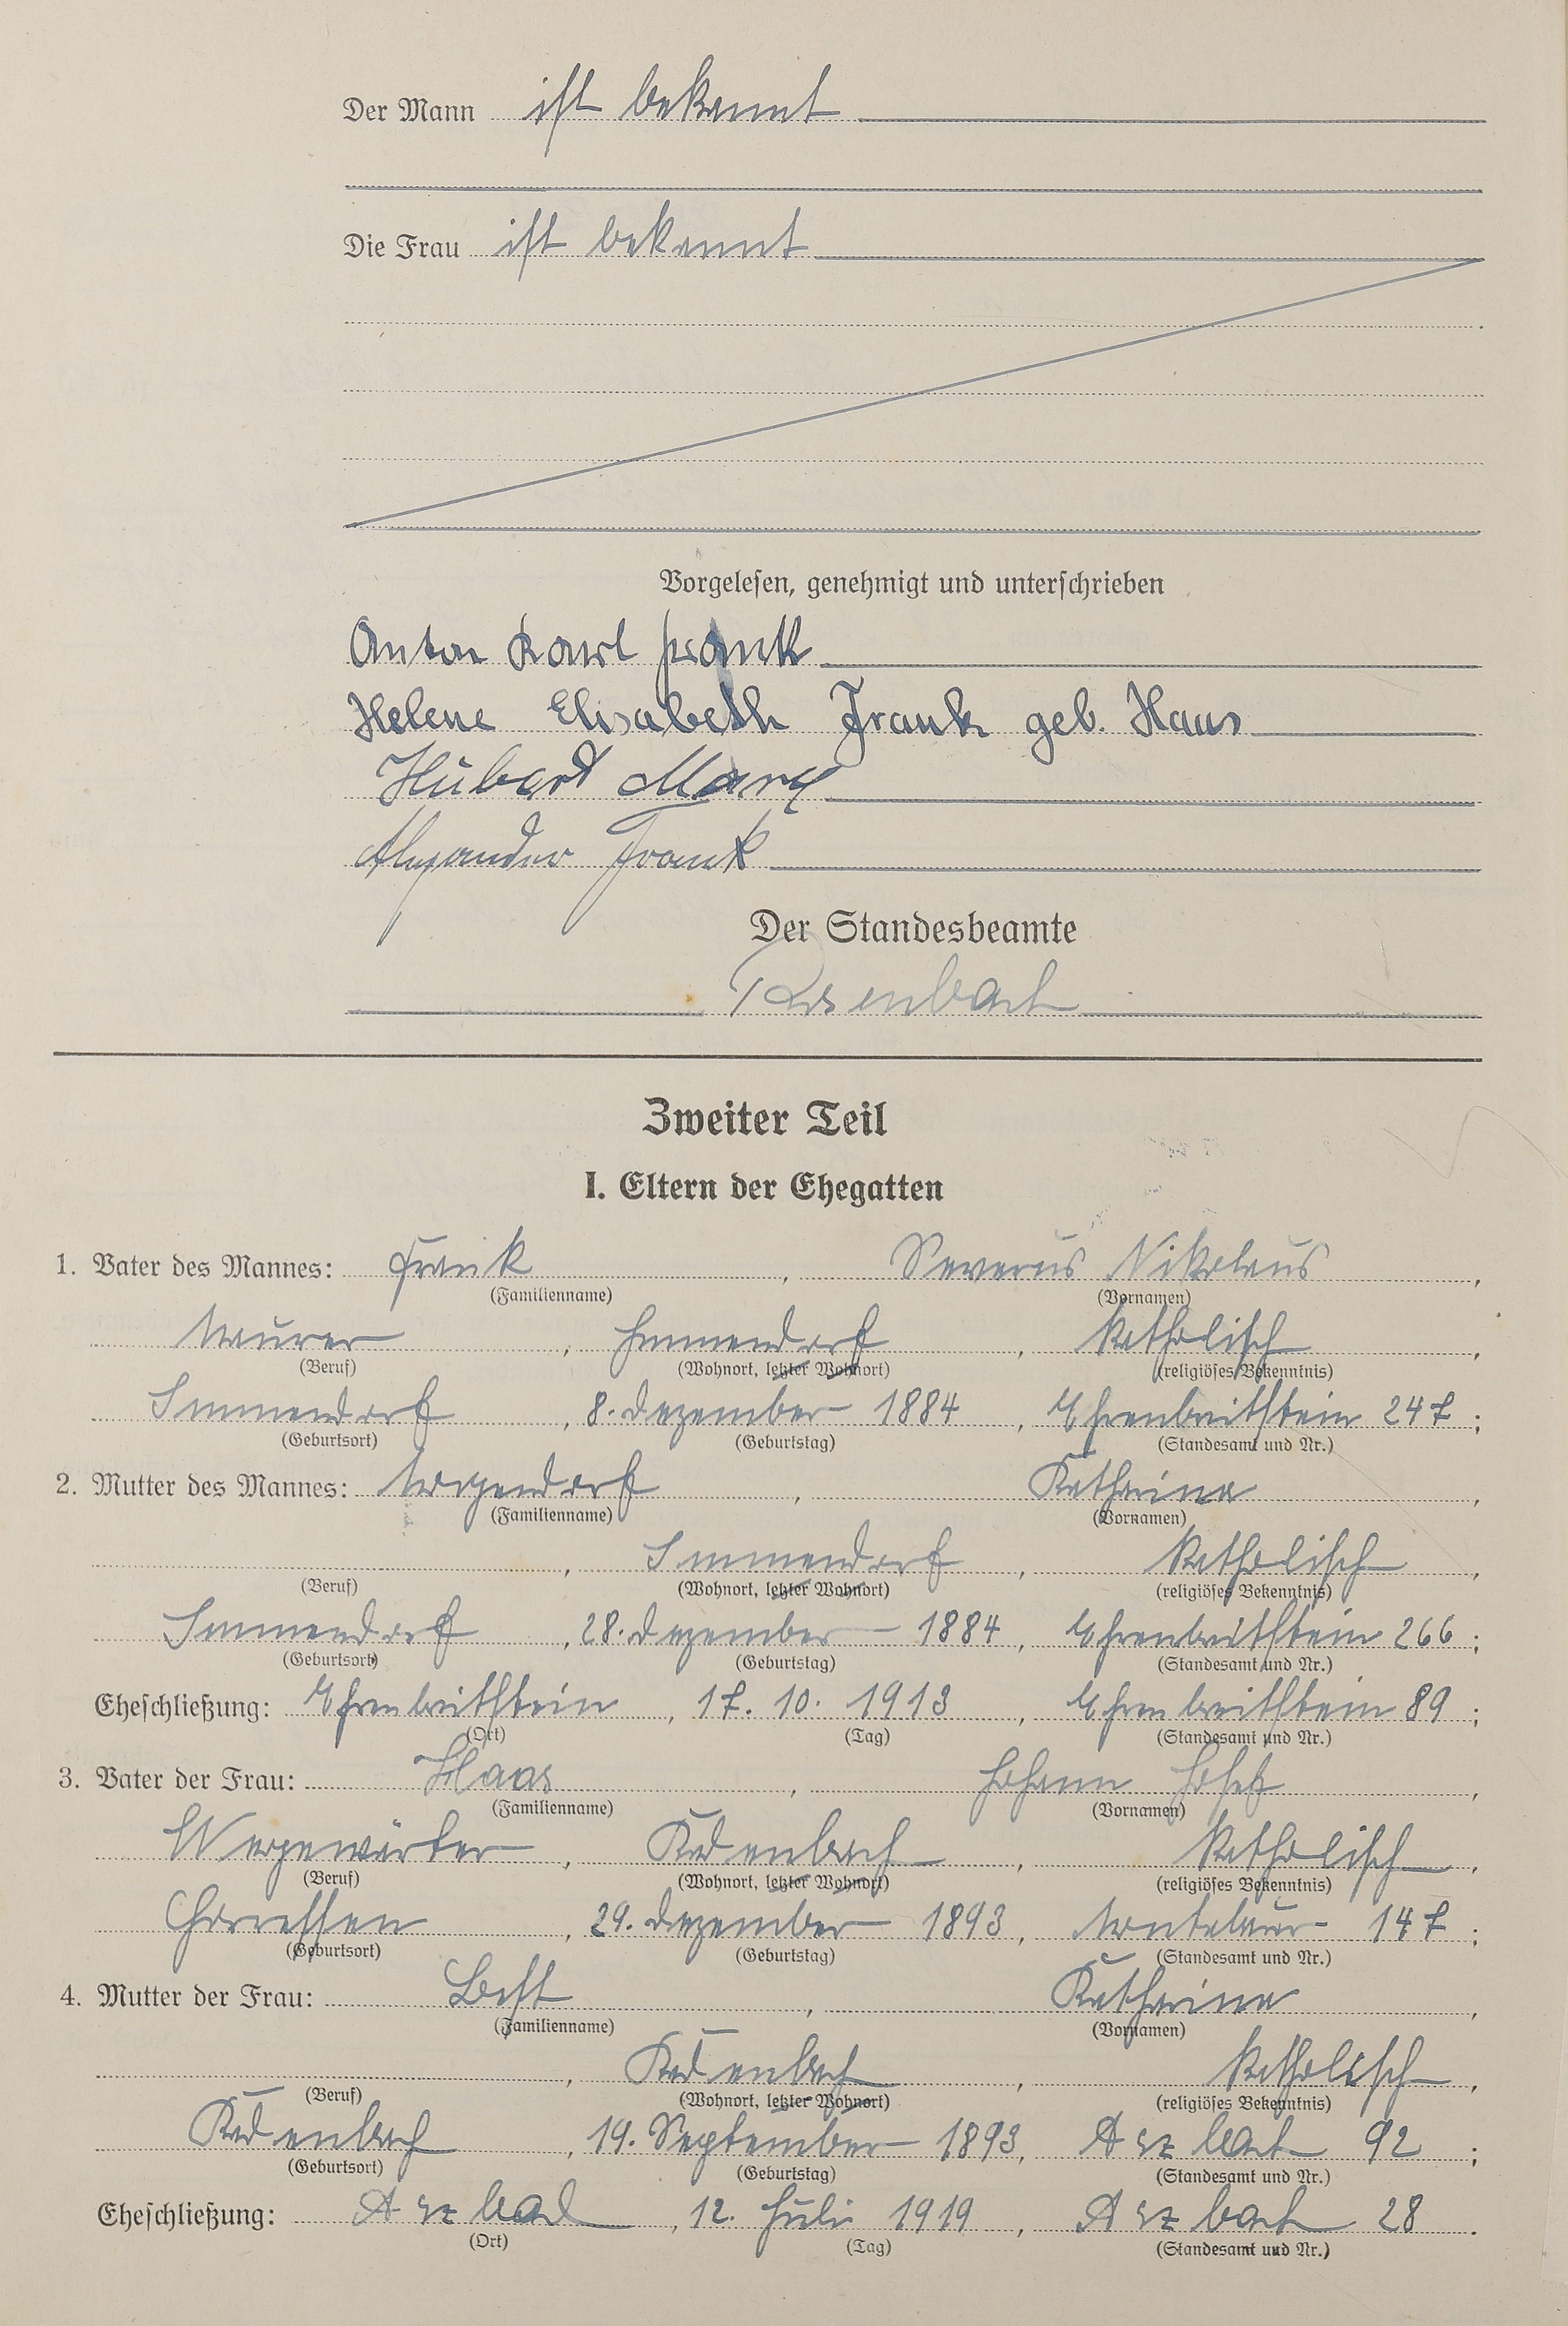 Der Mann ist bekannt
Die Frau ist bekannt
Vorgelesen, genehmigt und unterschrieben
Anton Karl Frank
Helene Elisabeth Frank geb. Haas
Hubert Marx
Alexander Frank
Der Standesbeamte
Zweiter Teil
I. Eltern der Ehegatten
1. Vater des Mannes: Frank, Severus Nikolaus,
(Familienname) (Vornamen)
Maurer, Immendorf, katholisch,
(Beruf) (Wohnort, letzter Wohnort) (religiöses Bekenntnis)
Immendorf, 8. Dezember 1884, Ehrenbreitstein 247;
(Geburtsort) (Geburtstag) (Standesamt und Nr.)
2. Mutter des Mannes: Morgendorf, Katharina,
(Familienname) (Vornamen)
, Immendorf, katholisch,
(Beruf) (Wohnort, letzter Wohnort) (religiöses Bekenntnis)
Immendorf, 28. Dezember 1884, Ehrenbreitstein 266;
(Geburtsort) (Geburtstag) (Standesamt und Nr.)
Eheschließung: Ehrenbreitstein, 17. 10. 1913, Ehrenbreitstein 89;
(Ort) (Tag) (Standesamt und Nr.)
3. Vater der Frau: Haas, Johann Josef,
(Familienname) (Vornamen)
Wegewärter, Kadenbach, katholisch,
(Beruf) (Wohnort, letzter Wohnort) (religiöses Bekenntnis)
Horressen, 29. Dezember 1893, Montabaur 147;
(Geburtsort) (Geburtstag) (Standesamt und Nr.)
4. Mutter der Frau: Best, Katharina,
(Familienname) (Vornamen)
, Kadenbach, katholisch,
(Beruf) (Wohnort, letzter Wohnort) (religiöses Bekenntnis)
Kadenbach, 19. September 1893, Arzbach 92;
(Geburtsort) (Geburtstag) (Standesamt und Nr.)
Eheschließung: Arzbach, 12. Juli 1919, Arzbach 28.
(Ort) (Tag) (Standesamt und Nr.)